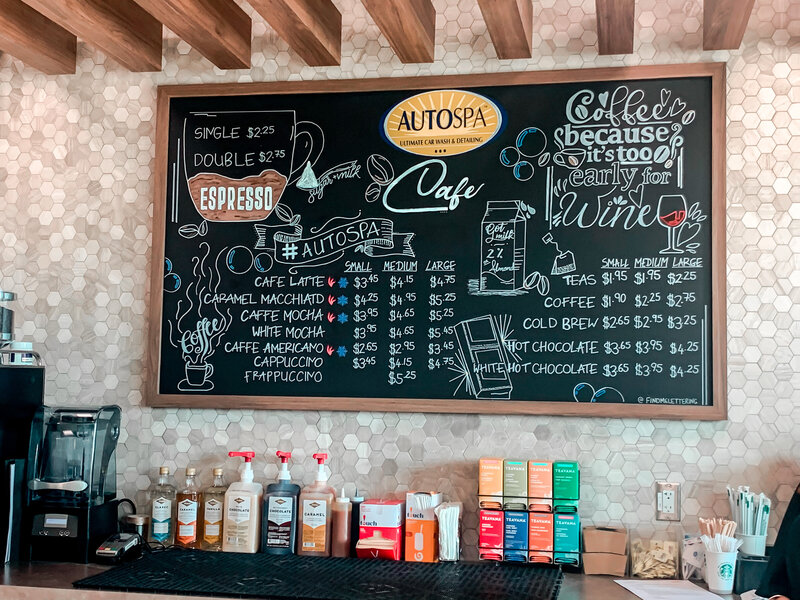 SINGLE $2.25
DOUBLE $2.75
ESPRESSO
sugar + milk
AUTOSPA
ULTIMATE CAR WASH & DETAILING
Cafe
Coffee
because
it's too
early for
Wine
#AUTOSPA
Got milk
2%
Almond
SMALL MEDIUM LARGE
CAFE LATTE $3.45 $4.15 $4.75
CARAMEL MACCHIATO $4.25 $4.95 $5.25
CAFFE MOCHA $3.95 $4.65 $5.25
WHITE MOCHA $3.95 $4.65 $5.45
CAFFE AMERICANO $2.65 $2.95 $3.45
CAPPUCCINO $3.45 $4.15 $4.75
FRAPPUCCINO $5.25
SMALL MEDIUM LARGE
TEAS $1.95 $1.95 $2.25
COFFEE $1.90 $2.25 $2.75
COLD BREW $2.65 $2.95 $3.25
HOT CHOCOLATE $3.65 $3.95 $4.25
WHITE HOT CHOCOLATE $3.65 $3.95 $4.25
Coffee
@FIINDMELETTERING
CLASSIC
CARAMEL
VANILLA
CHOCOLATE
CARAMEL
touch
TEAVANA
TEAVANA
TEAVANA
TEAVANA
TEAVANA
TEAVANA
TEAVANA
TEAVANA